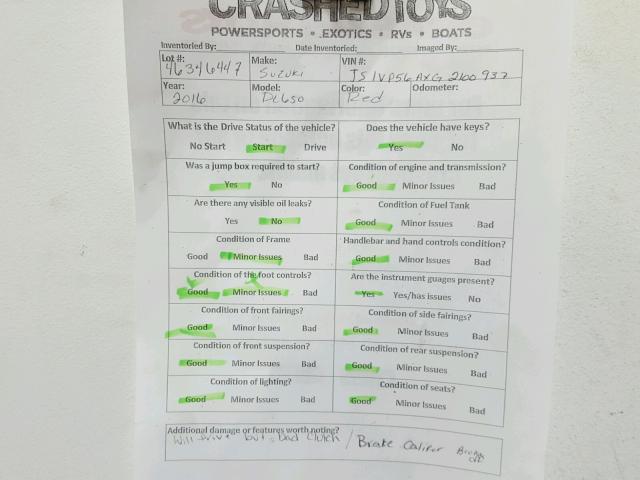 CRASHEDTOYS
POWERSPORTS • EXOTICS • RVs • BOATS
Inventoried By: Date Inventoried: Imaged By:
Lot #: 46346447 Make: Suzuki VIN #: JS1VP56AXG2100937
Year: 2016 Model: DL650 Color: Red Odometer:
What is the Drive Status of the vehicle? Does the vehicle have keys?
No Start Start Drive Yes No
Was a jump box required to start? Condition of engine and transmission?
Yes No Good Minor Issues Bad
Are there any visible oil leaks? Condition of Fuel Tank
Yes No Good Minor Issues Bad
Condition of Frame Handlebar and hand controls condition?
Good Minor Issues Bad Good Minor Issues Bad
Condition of the foot controls? Are the instrument guages present?
Good Minor Issues Bad Yes Yes/has issues No
Condition of front fairings? Condition of side fairings?
Good Minor Issues Bad Good Minor Issues Bad
Condition of front suspension? Condition of rear suspension?
Good Minor Issues Bad Good Minor Issues Bad
Condition of lighting? Condition of seats?
Good Minor Issues Bad Good Minor Issues Bad
Additional damage or features worth noting?
Will drive but bad clutch / Brake Caliper Broken off